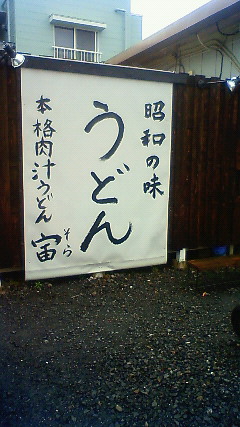 昭和の味
うどん
本格肉汁うどん
宙
そら